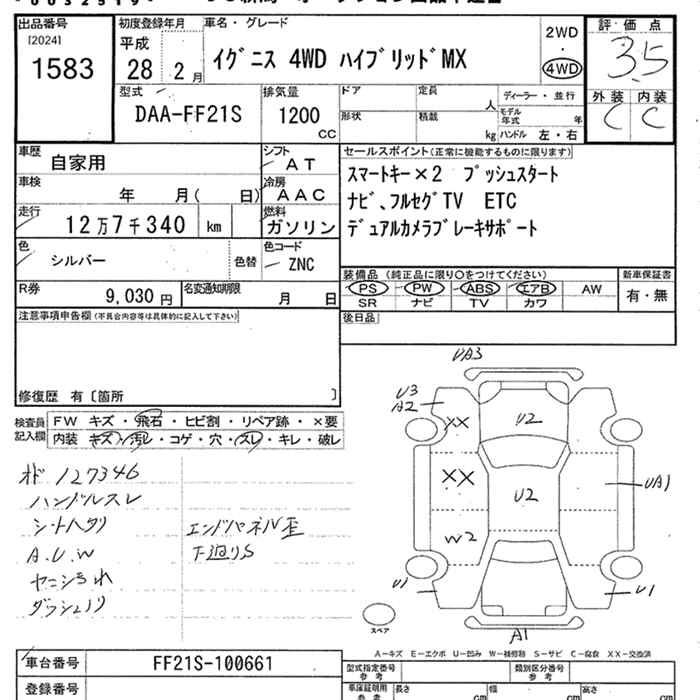 出品番号 初度登録年月 車名・グレード 2WD 評価点
[2024] 平成 ・
1583 28 2月 イグニス 4WD ハイブリッドMX 4WD 3.5
型式 排気量 ドア 定員 ディーラー・並行 外装 内装
DAA-FF21S 1200 人 モデル年式 年 C C
cc 形状 積載 kg ハンドル 左・右
車歴 自家用 シフト AT セールスポイント(正常に機能するものに限ります)
車検 年 月( 日) 冷房 AAC スマートキー×2 プッシュスタート
走行 12万7千340 km 燃料 ガソリン ナビ、フルセグTV ETC
デュアルカメラブレーキサポート
色 シルバー 色替 色コード ZNC
装備品(純正品に限り○をつけてください) 新車保証書
R券 9,030円 名変通知期限 月 日 PS PW ABS エアB AW 有・無
SR ナビ TV カワ
注意事項申告欄(不具合内容等は具体的に記入して下さい) 後日品
修復歴 有〔箇所 〕
検査員記入欄 FW キズ・飛石・ヒビ割・リペア跡・×要
内装 キズ・汚レ・コゲ・穴・スレ・キレ・破レ
オド 127346
ハンドルスレ
シートヘタリ
A.U.W
ヤニ汚れ
エンドパネル歪
下廻りS
UA3
U3
A2
XX
U2
XX
U2
UA1
W2
U1
U1
A1
スペア
A−キズ E−エクボ U−凹み W−補修跡 S−サビ C−腐食 XX−交換済
車台番号 FF21S-100661 型式指定番号 参考 類別区分番号 参考
登録番号 車庫証明用 参考 長さ cm 幅 cm 高さ cm